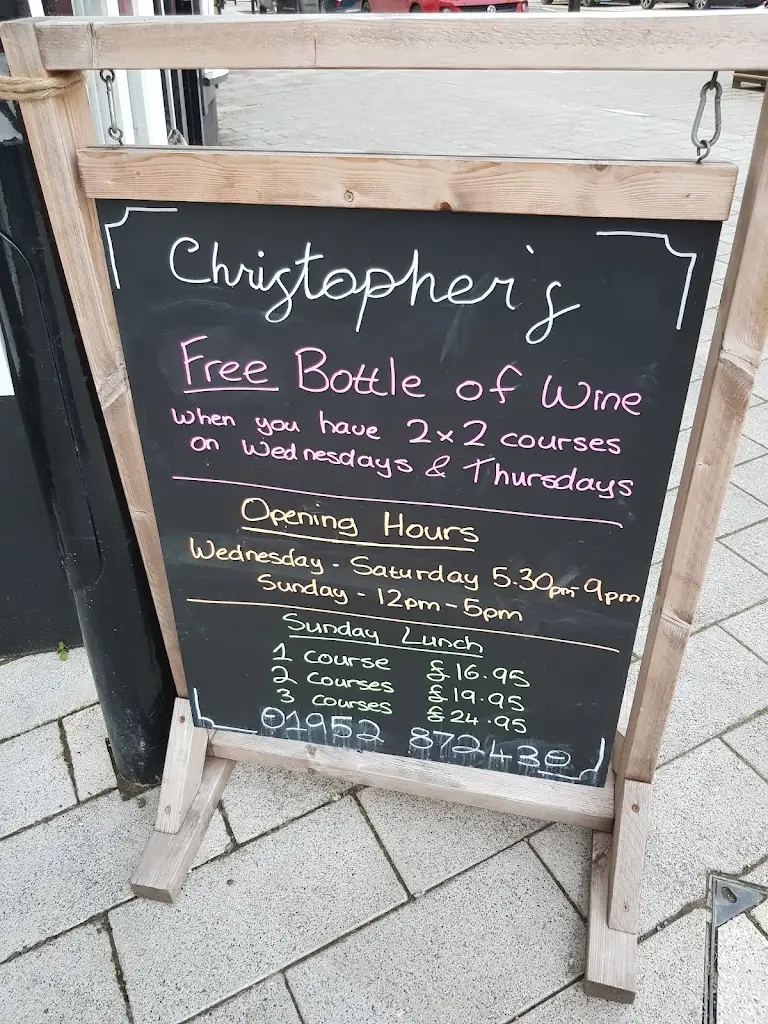 Christopher's
Free Bottle of Wine
when you have 2x2 courses
on Wednesdays & Thursdays
Opening Hours
Wednesday - Saturday 5.30pm-9pm
Sunday - 12pm-5pm
Sunday Lunch
1 course £16.95
2 courses £19.95
3 courses £24.95
01952 872430